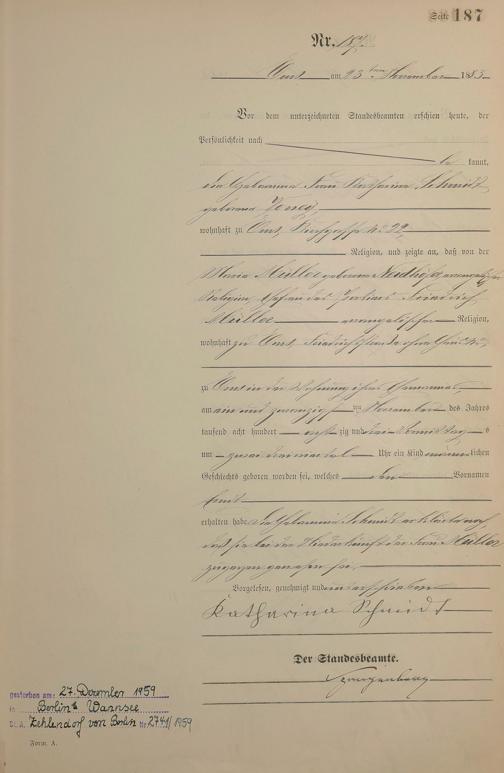 Seite 187
Nr. 187
Ems am 23ten November 1883
Vor dem unterzeichneten Standesbeamten erschien heute, der
Persönlichkeit nach
be kannt,
die Hebamme Frau Katharina Schmidt
geborene
wohnhaft zu Ems,
Religion, und zeigte an, daß von der
Maria Müller geborene evangelischer
Religion, Ehefrau des Friedrich
Müller evangelischer Religion,
wohnhaft zu Ems,
zu Ems in der Wohnung ihres Ehemannes,
am ein und zwanzigsten November des Jahres
tausend acht hundert acht zig und drei Vormittags
um Uhr ein Kind männlichen
Geschlechts geboren worden sei, welches den Vornamen
Emil
erhalten habe. Die Hebamme Schmidt erklärte noch,
daß sie bei der Niederkunft der Frau Müller
zugegen gewesen sei.
Vorgelesen, genehmigt und unterschrieben
Katharina Schmidt
Der Standesbeamte.
gestorben am: 27. Dezember 1959
in Berlin Wannsee
St. A. Zehlendorf von Berlin Nr. 2741/1959
Form. A.